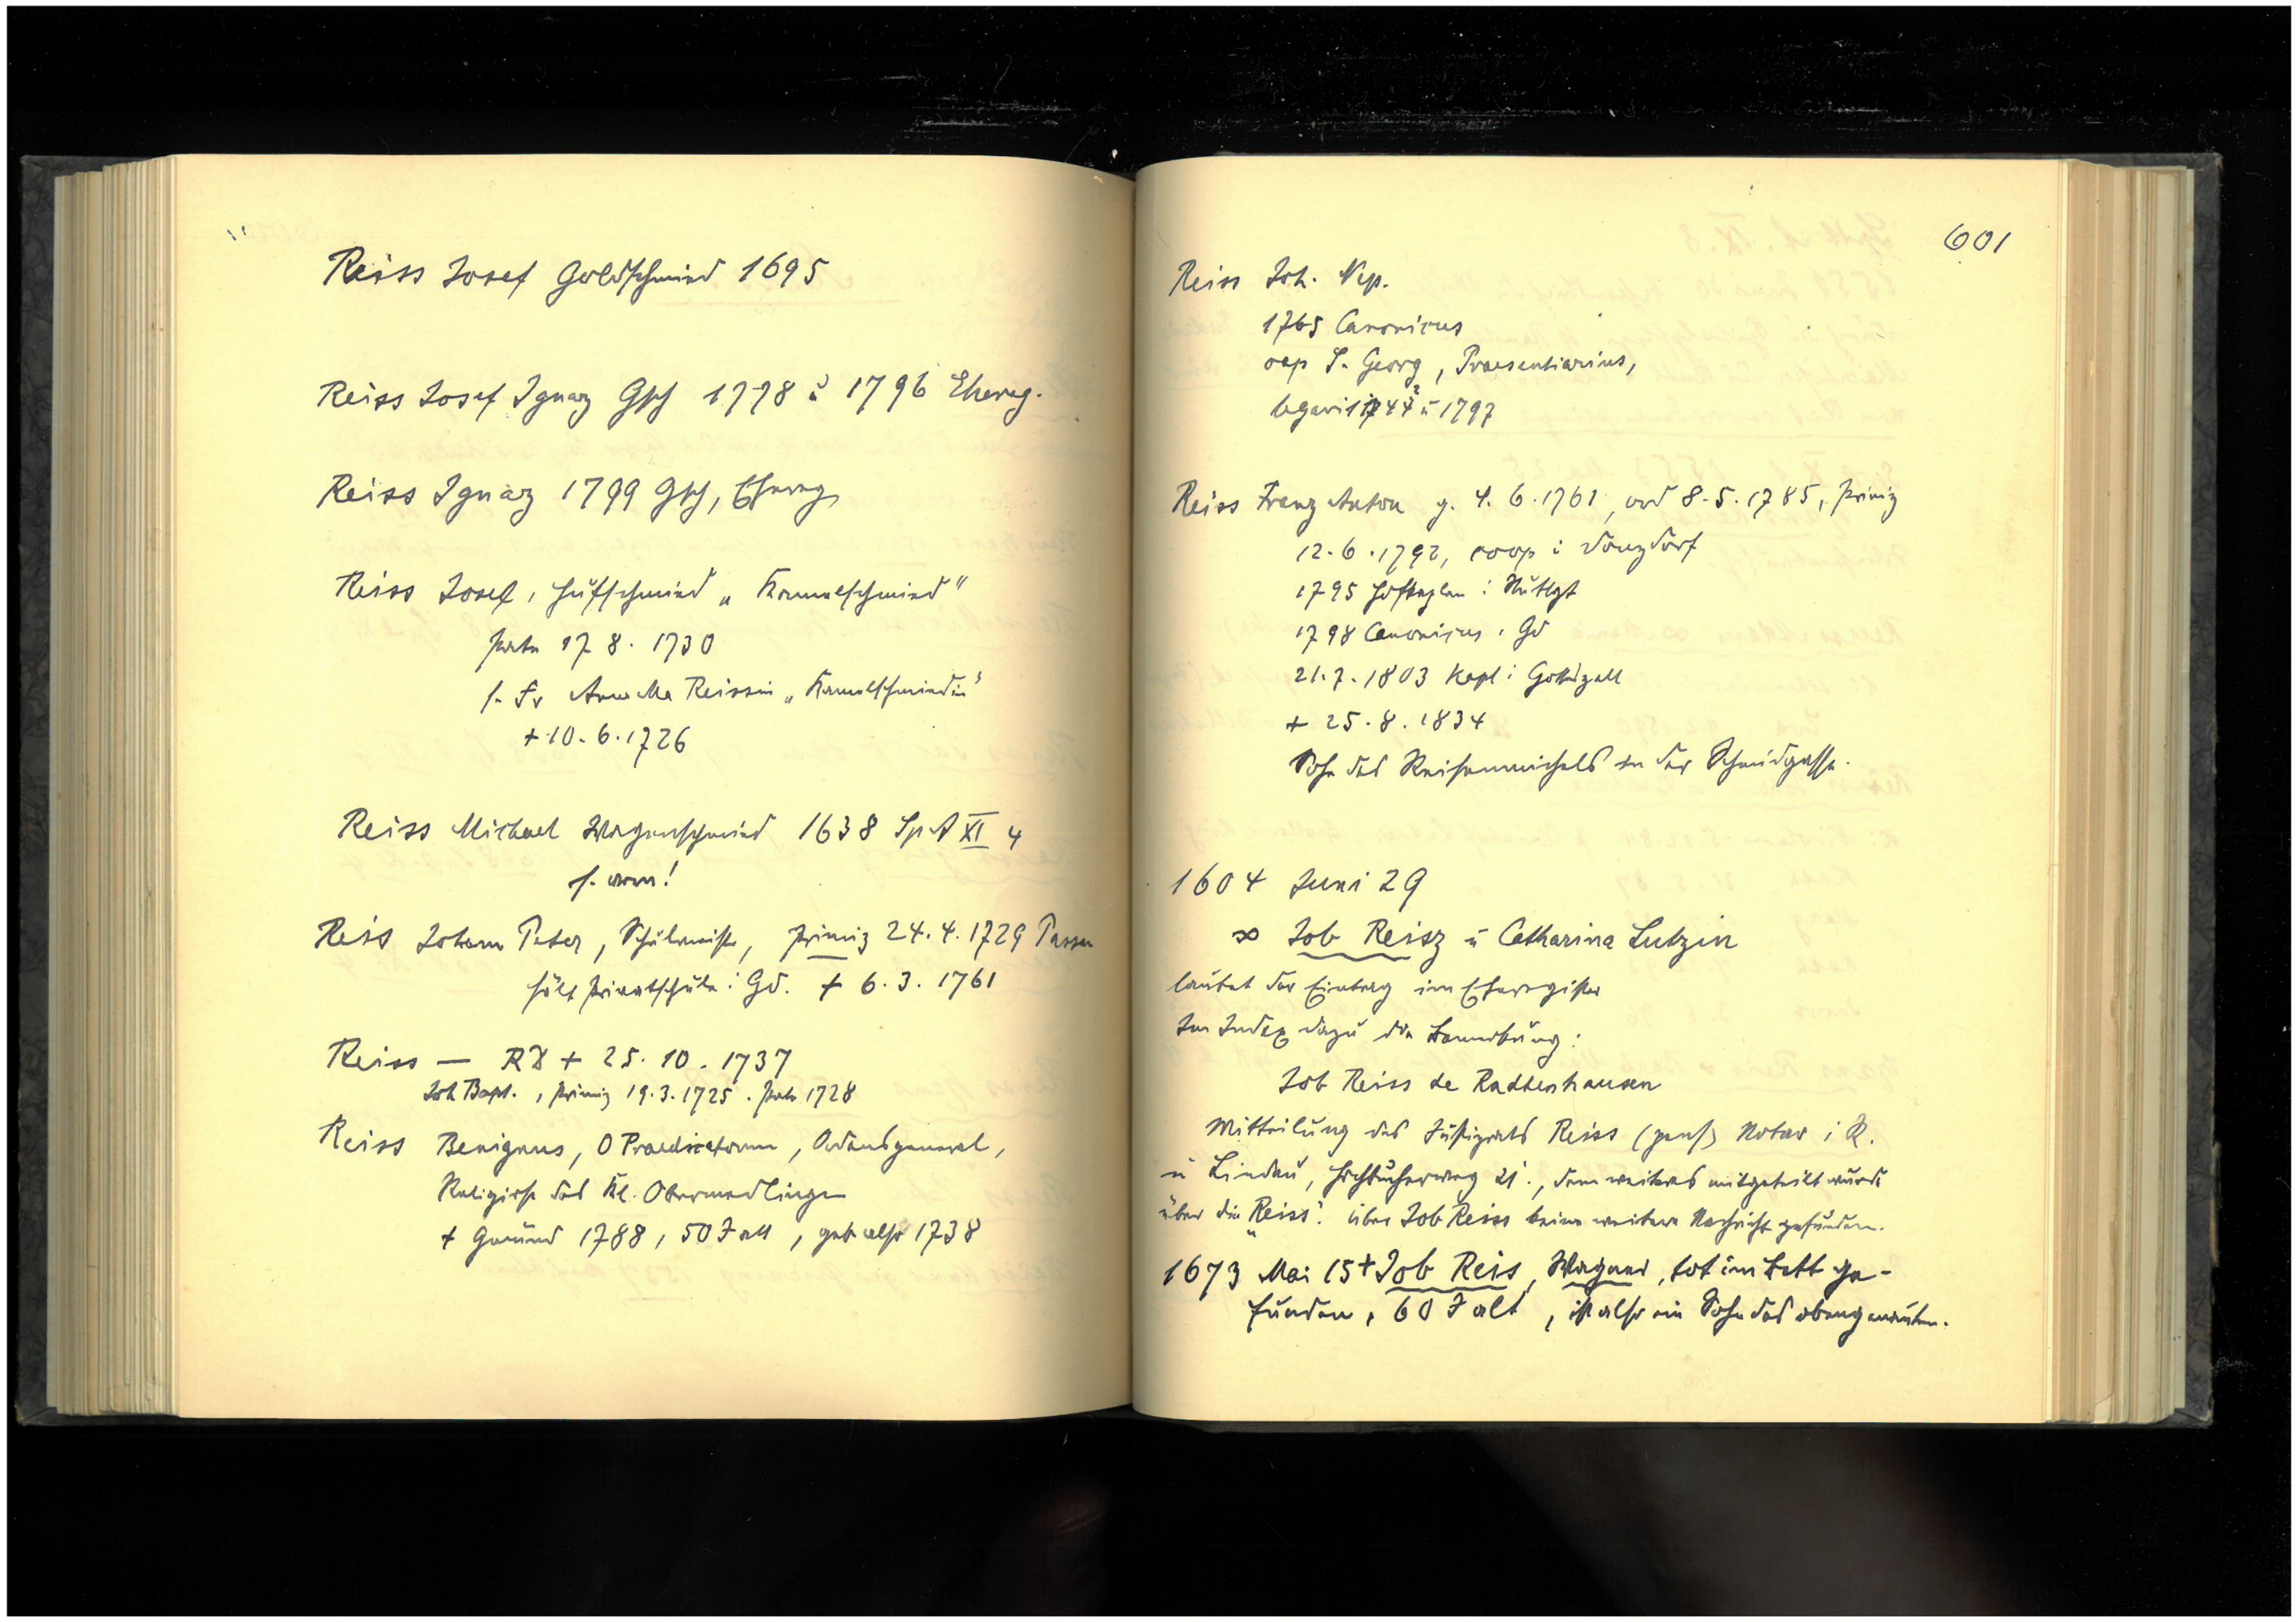 Reiss Josef Goldschmied 1695
Reiss Josef Ignaz Gsch 1778 u 1796 Ehereg.
Reiss Ignaz 1799 Gsch, Ehereg
Reiss Josef, Hufschmied „Kammelschmied"
Pate 17 8. 1730
s. Fr Anna Ma Reissin „Kamelschmiedin"
+ 10. 6. 1726
Reiss Michael Wagenschmied 1638 Sp A XI 4
s. arm!
Reiss Johann Peter, Schulmeister, Primiz 24. 4. 1729
hält Privatschule i Gd. + 6. 3. 1761
Reiss — + 25. 10. 1737
Joh Bapt., Primiz 19. 3. 1725. Pate 1728
Reiss Benignus, O Praedicatorum, Ordensgeneral,
Religiose des Kl. Obermedlingen
+ Gmünd 1788, 50 J alt, geb also 1738
601
Reiss Joh. Nep.
1765 Canonicus
cap S. Georg, Praesentiarius,
u 1797
Reiss Franz Anton g. 4. 6. 1761, ord 8. 5. 1785, Primiz
12. 6. 1792, coop i Donzdorf
1795 Hofkaplan i Stuttgt
1798 Canonicus i Gd
21. 7. 1803 Kapl i Gotteszell
+ 25. 8. 1834
Sohn des Reisenmichels in der Schmidgasse.
1604 Juni 29
∞ Job Reisz u Catharina Lutzin
lautet der Eintrag im Eheregister
Im Index dazu die Bemerkung:
Job Reiss de Radtenhausen
Mitteilung des Justizrats Reiss (gens) Notar i R.
u Lindau, Hochbucherweg 21., dem weiteres mitgeteilt wurde
über die „Reiss". Über Job Reiss keine weitere Nachricht gefunden.
1673 Mai 15 + Job Reis, Wagner, tot im Bett ge-
funden, 60 J alt, ist also ein Sohn des obengenannten.